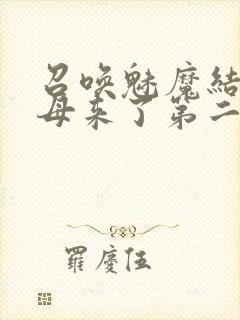 召唤魅魔结
母来了第二
羅慶伍